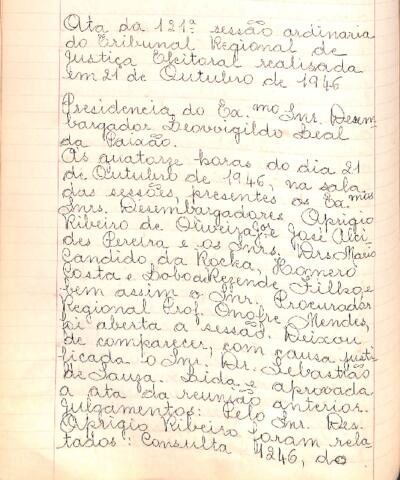 Ata da 121ª sessão ordinaria
do Tribunal Regional de
Justiça Eleitoral realisada
em 21 de Outubro de 1946
Presidencia do Ex.mo Snr. Desem-
bargador Leovigildo Leal
da Paixão.
Ás quatorze horas do dia 21
de Outubro de 1946, na sala
das sessões, presentes os Ex.mos
Snrs. Desembargadores Aprigio
Ribeiro de Oliveira e José Alci-
des Pereira e os Snrs. Drs. Mario
Candido da Rocha, Homero
Costa e Rezende Filho, e
bem assim o Snr. Procurador
Regional Prof. Onofre Mendes,
foi aberta a sessão. Deixou
de comparecer, com causa justi-
ficada o Snr. Dr. Sebastião
de Souza. Lida e aprovada
a ata da reunião anterior.
Julgamentos: Pelo Snr. Des.
Aprigio Ribeiro foram rela-
tados: Consulta 4246, do